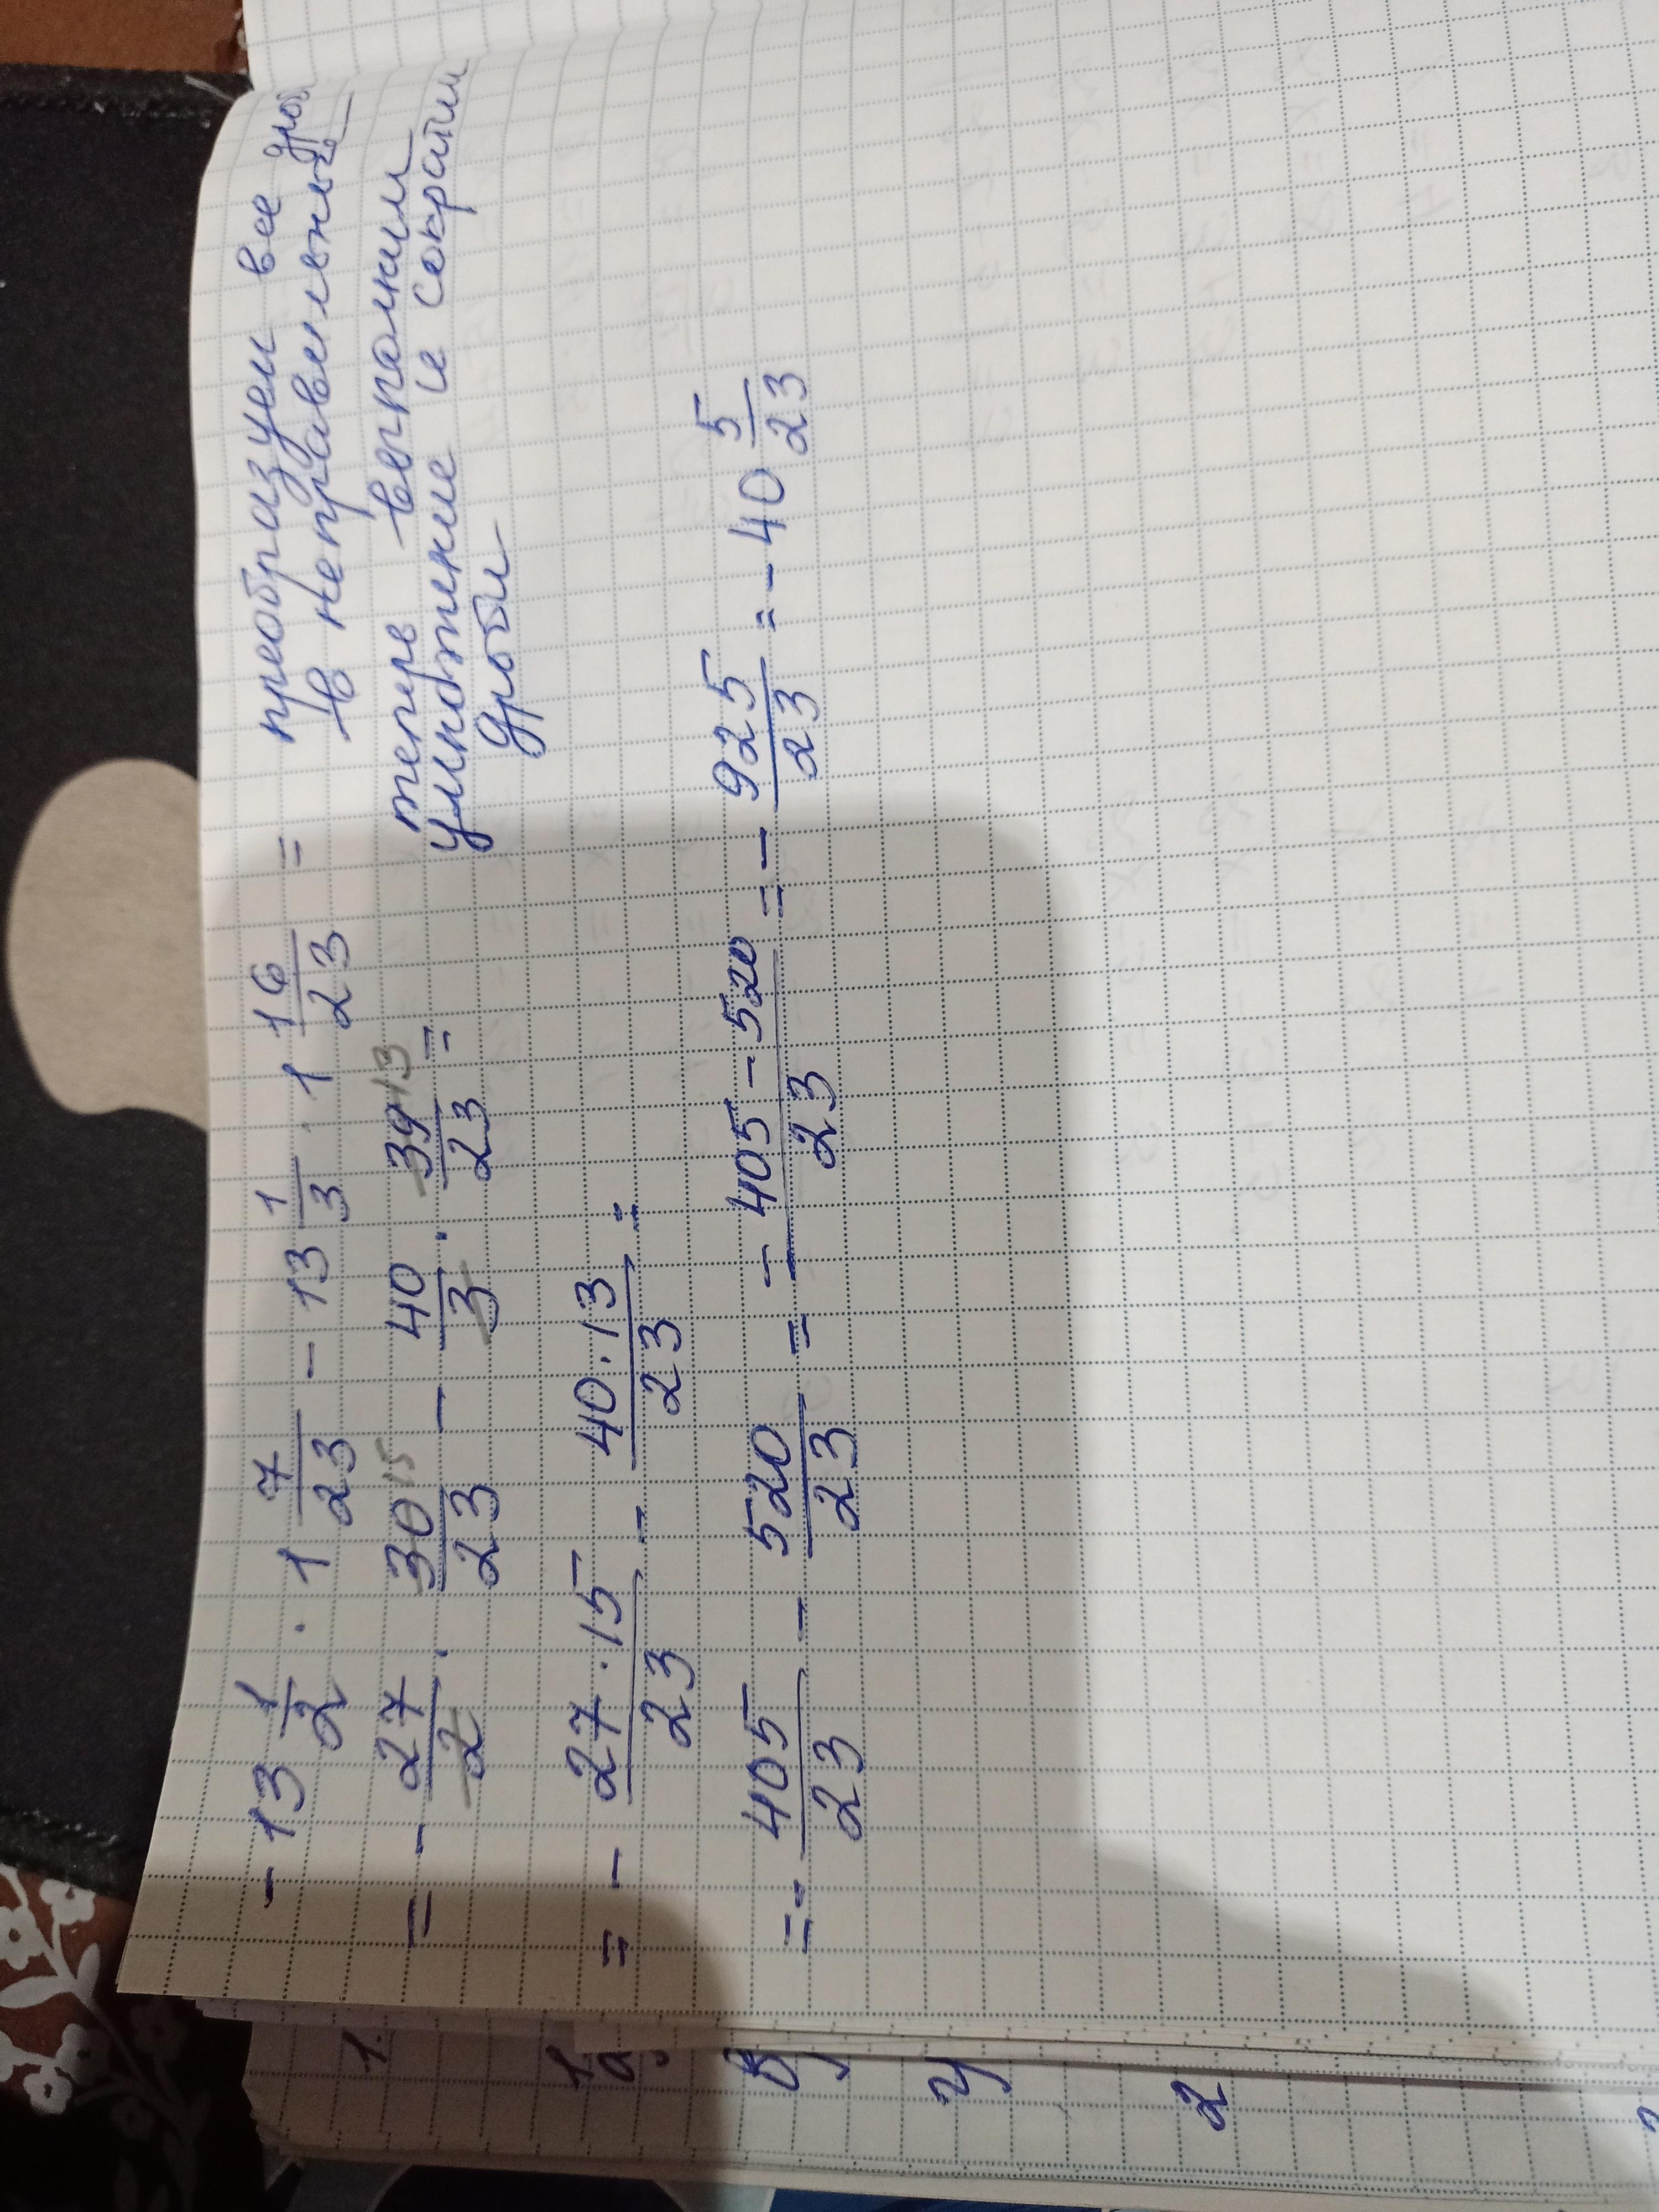 - 13 1/2 · 1 7/23 - 13 1/3 · 1 16/23 = преобразуем все
в неправильные
= - 27/2 · 30/23 15 - 40/3 · 39/23 13 = теперь выполним
умножение и сократим
дроби
= - 27 · 15/23 - 40 · 13/23 =
= - 405/23 - 520/23 = - 405 - 520/23 = - 925/23 = - 40 5/23
1.
1.
2